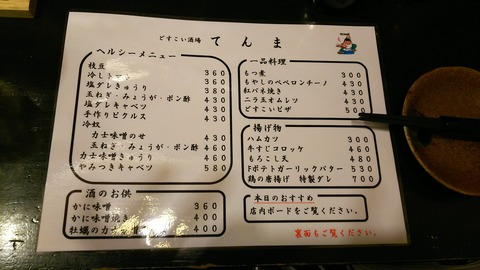 どすこい酒場 てんま
ヘルシーメニュー
枝豆 360
冷しトマト 360
塩ダレきゅうり 380
玉ねぎ・みょうが・ポン酢 430
塩ダレキャベツ 430
手作りピクルス 430
冷奴
力士味噌のせ 430
玉ねぎ・みょうが・ポン酢 460
力士味噌きゅうり 460
やみつきキャベツ 580
酒のお供
かに味噌 360
かに味噌焼き 400
牡蠣のカ 400
一品料理
もつ煮 300
もやしのペペロンチーノ 430
紅バネ焼き 430
ニラ玉オムレツ 430
どすこいピザ 500
揚げ物
ハムカツ 300
牛すじコロッケ 460
もろこし天 480
Fポテトガーリックバター 530
鶏の唐揚げ 特製ダレ 700
本日のおすすめ
店内ボードをご覧ください。
裏面もご覧ください。